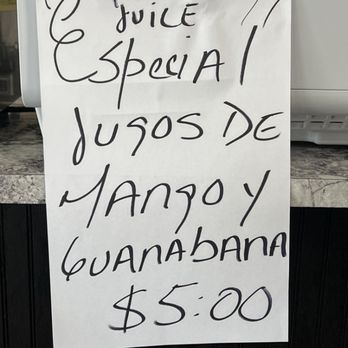 "JUICE"
Especial
Jugos DE
Mango y
GUANAbANA
$5:00